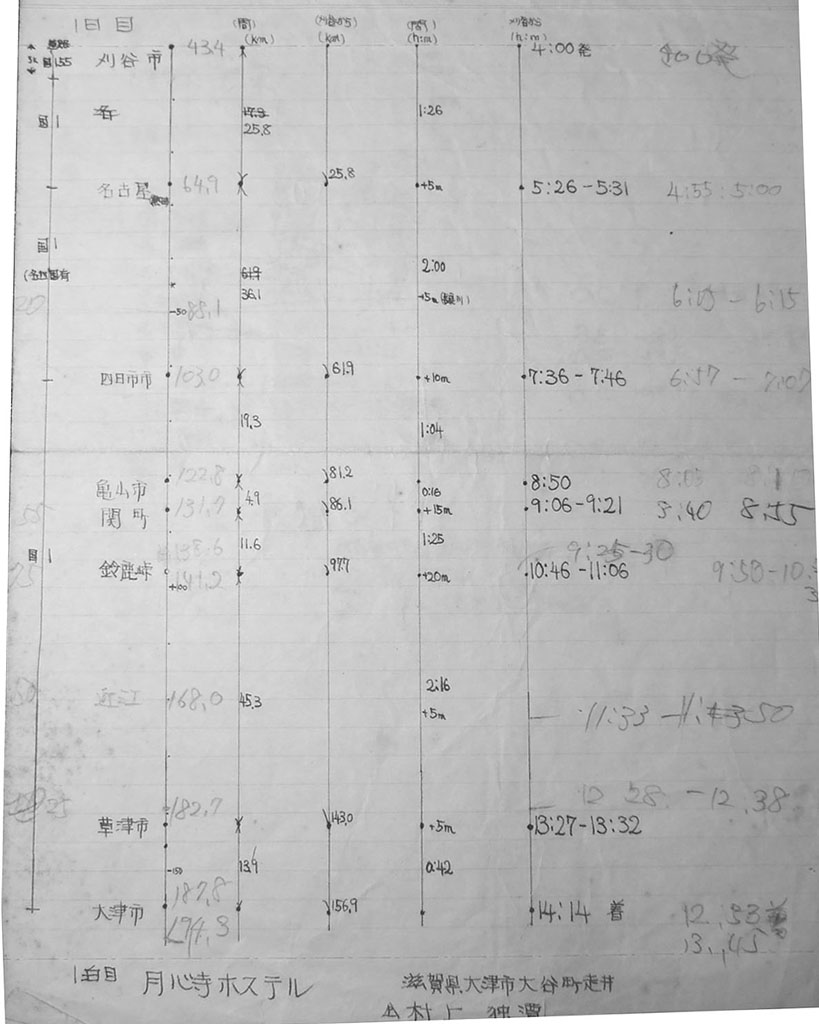 1日目 (間) (km) (刈谷から) (km) (間) (h:m) 刈谷から (h:m)
国155 刈谷市 43.4 4:00発 400発
国1 25.8 1:26
名古屋 64.9 25.8 +5m 5:26-5:31 4:55 5:00
国1 61.9 2:00
36.1 +5m 6:05-6:15
-50 85.1
四日市市 103.0 61.9 +10m 7:36-7:46 6:57-7:07
19.3 1:04
亀山市 122.8 81.2 8:50
4.9 0:16
関町 131.7 86.1 +15m 9:06-9:21 8:40 8:55
国1 138.6 11.6 1:25 9:25-30
鈴鹿峠 141.2 97.7 +20m 10:46-11:06 9:50-10
+100
近江 168.0 45.3 2:16
+5m 11:33
182.7 12 28-12.38
草津市 143.0 +5m 13:27-13:32
-150 13.9 0:42
187.8
大津市 156.9 14:14 着 12.53着
194.3 13.45
1泊目 月心寺ホステル 滋賀県大津市大谷町走井
村上